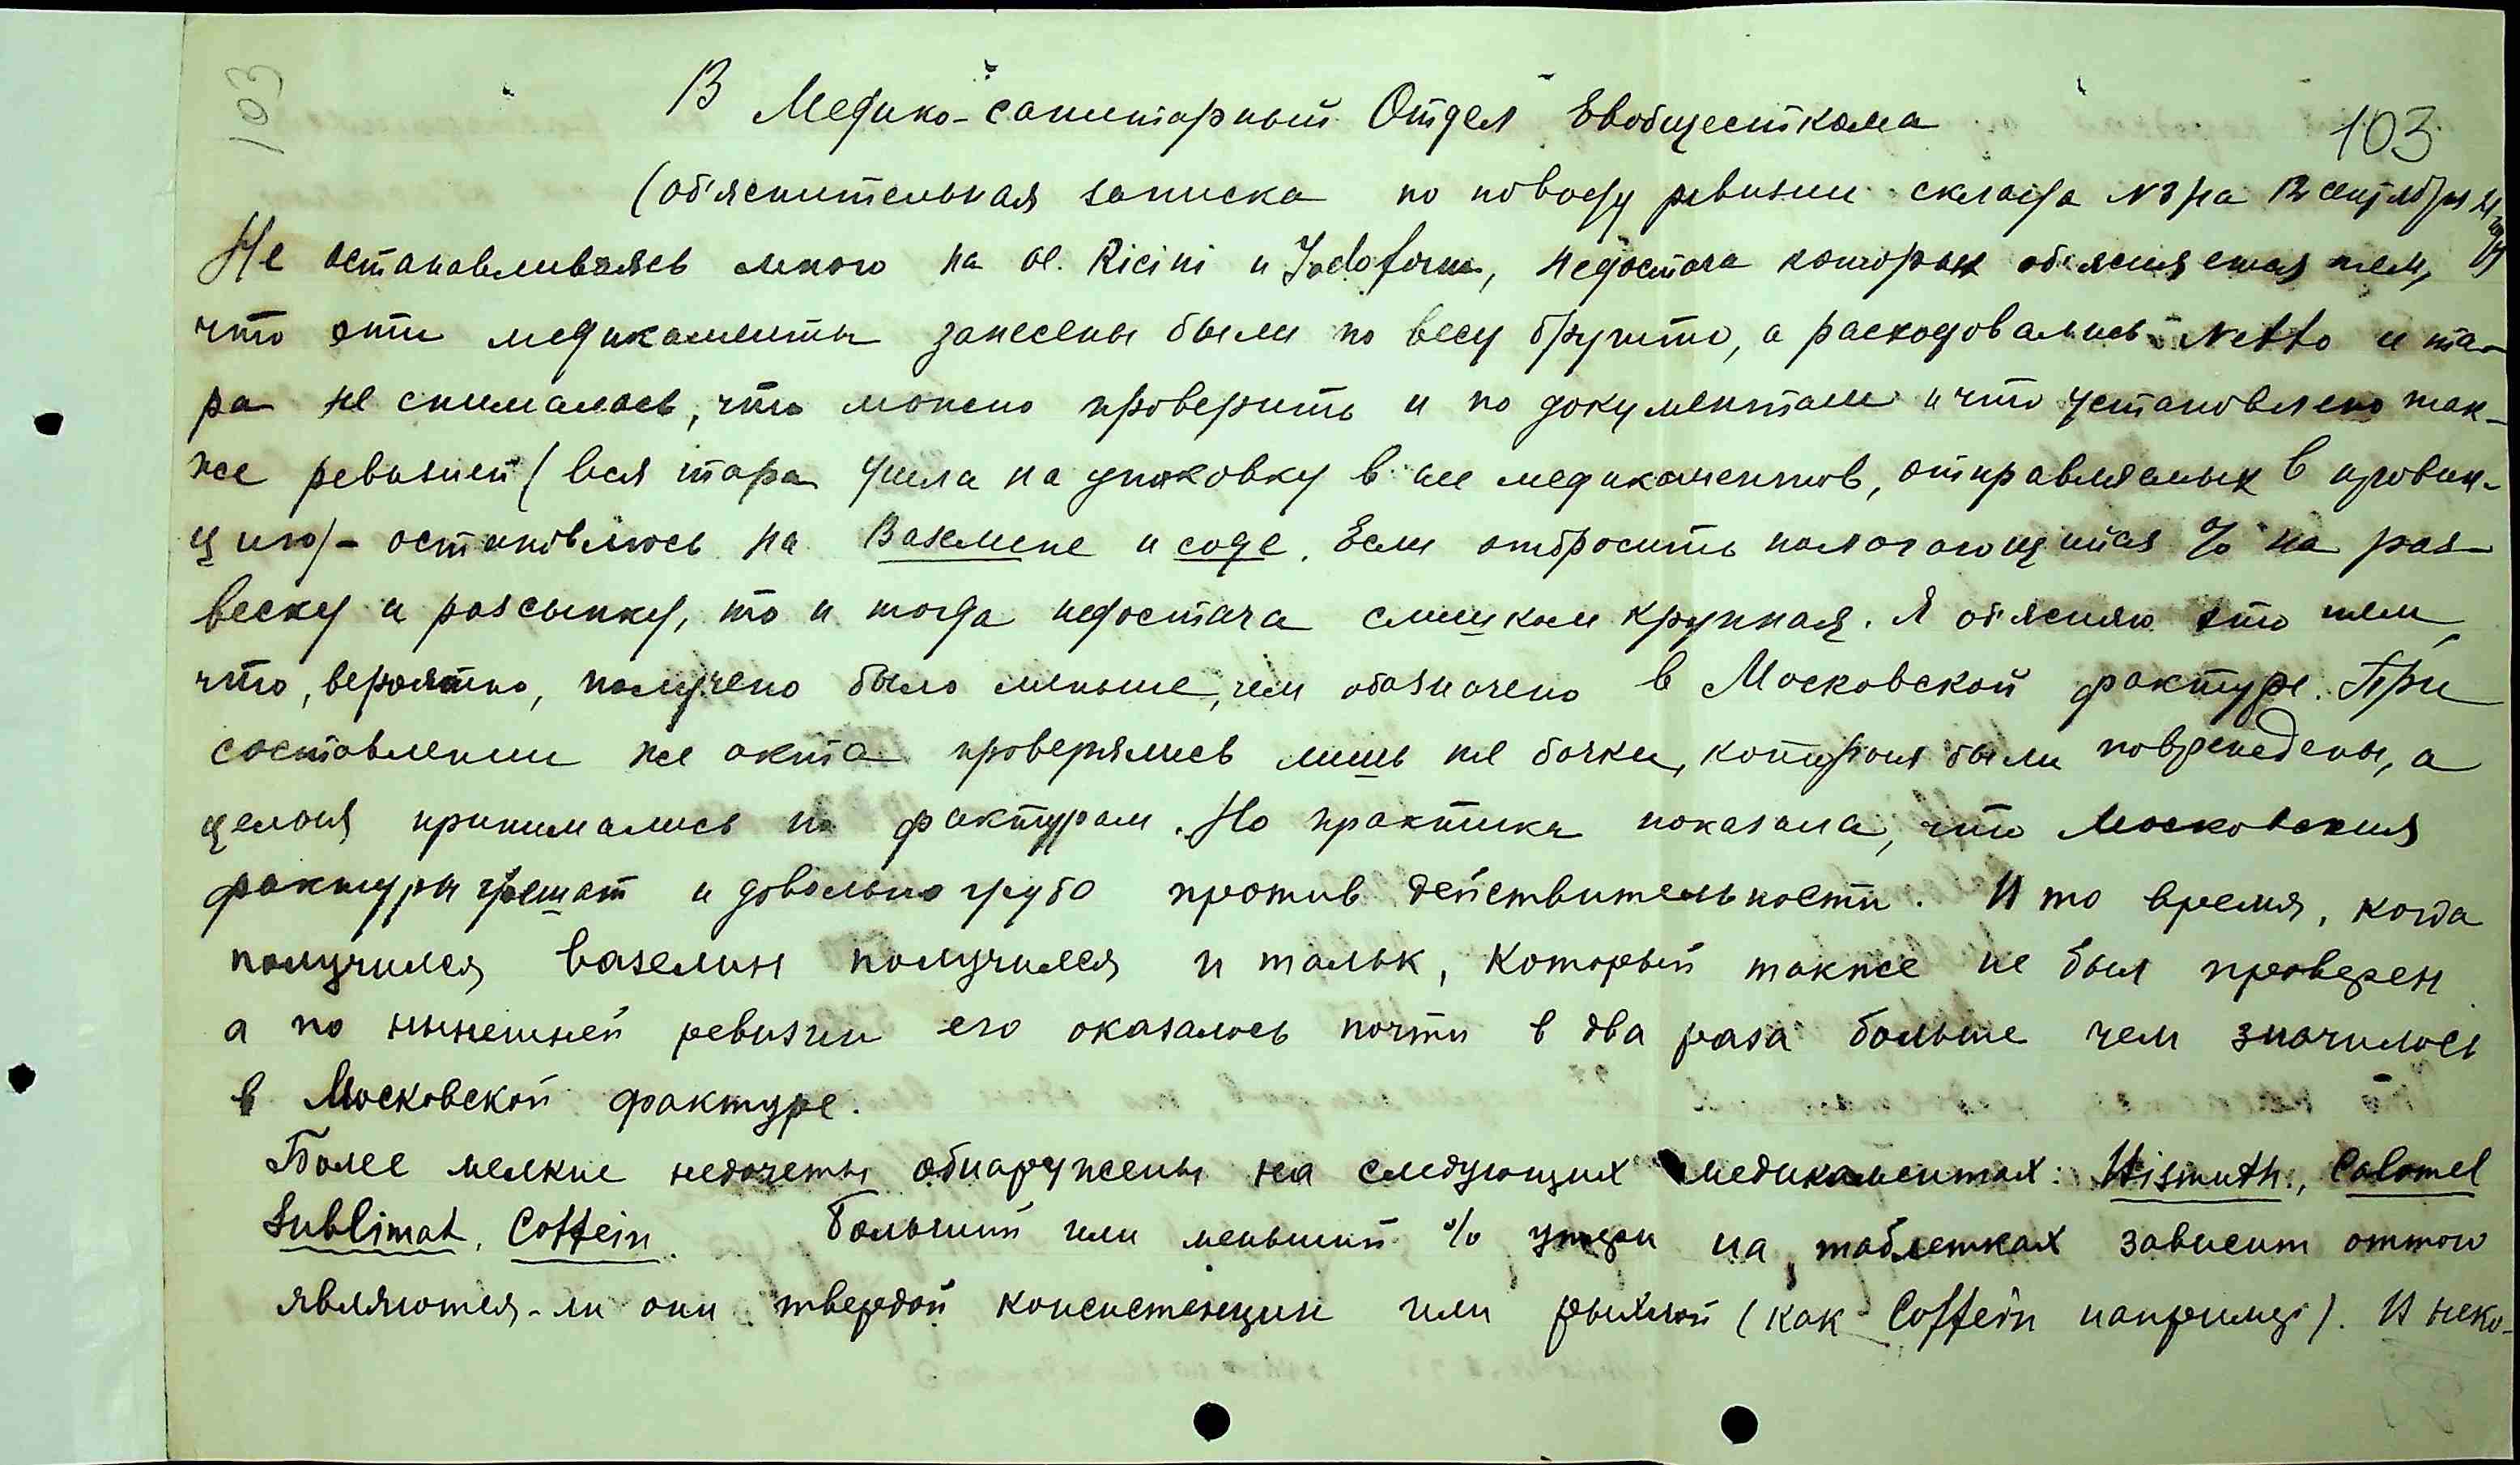 103
В Медико-санитарный Отдел Евобщесткома
103
(об'яснительная записка по поводу ревизии склада №3 на 12 сентября 21 г.
Не останавливаясь много на ol. Ricini и Jodoform, недостача которых об'ясняется тем,
что эти медикаменты занесены были по весу брутто, а расходовались Netto и та-
ра не снималась, что можно проверить и по документам и что установлено так-
же ревизией (вся тара ушла на упаковку медикаментов, отправляемых в провин-
цию) - остановлюсь на Вазелине и соде. Если отбросить полагающийся % на раз-
веску и рассыпку, то и тогда недостача слишком крупная. Я об'ясняю это тем,
что, вероятно, получено было меньше, чем обозначено в Московской фактуре. При
составлении же акта проверялись лишь те бочки, которыя были повреждены, а
целыя принимались по фактурам. Но практика показала, что Московския
фактуры грешат и довольно грубо против действительности. И то время, когда
получился вазелин получился и тальк, который также не был проверен
а по нынешней ревизии его оказалось почти в два раза больше чем значилось
в Московской фактуре.
Более мелкие недочеты обнаружены на следующих медикаментах: Bismuth., Calomel
Sublimat, Coffein. Больший или меньший % утери на таблетках зависит оттого
являются-ли они твердой консистенции или рыхлой (как Coffein например). И неко-